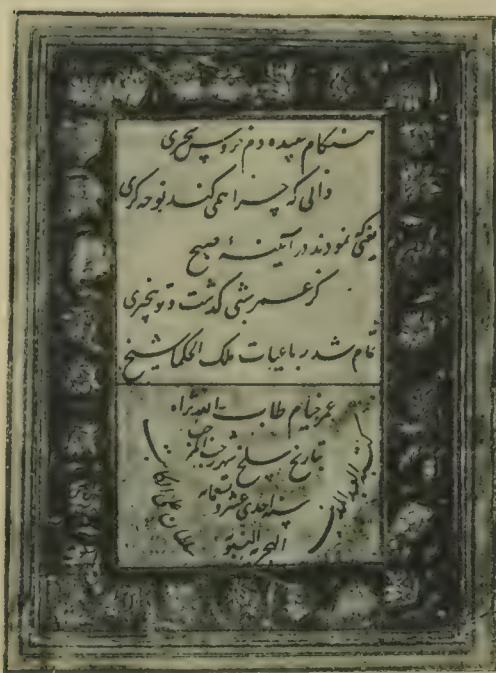 هنگام سپیده دم خروس سحری
دانی که چرا همی کند نوحه گری
یعنی که نمودند در آیینهٔ صبح
کز عمر شبی گذشت و تو بیخبری
تمام شد رباعیات ملک الحکما شیخ
عمر خیام طاب الله ثراه
بتاریخ سلخ شهر رجب المرجب
سنه احدی عشر و تسعمایه
الهجریة النبویة
کتبه العبد المذنب
سلطان علی الکاتب